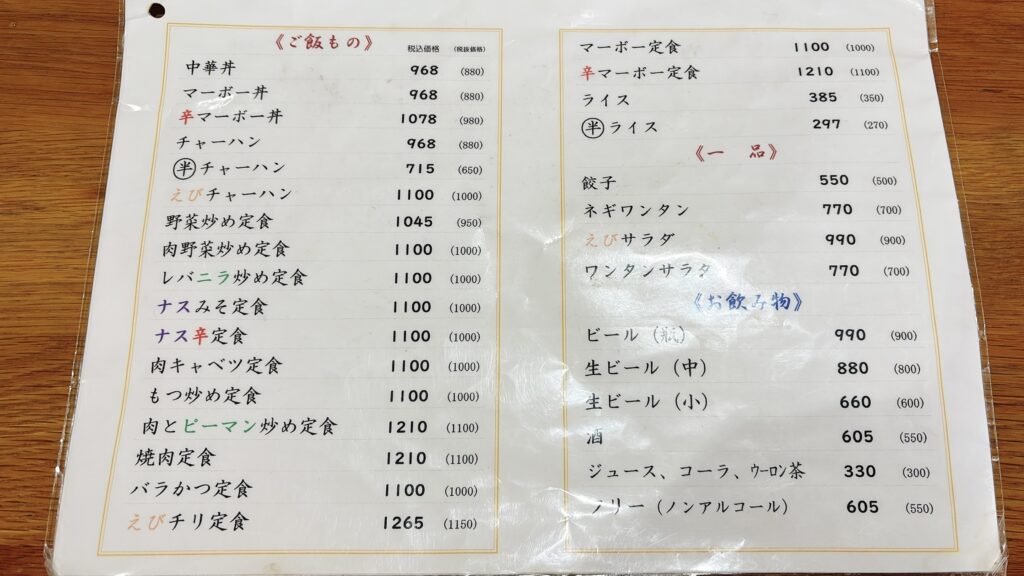 《ご飯もの》 税込価格 (税抜価格)
中華丼 968 (880)
マーボー丼 968 (880)
辛マーボー丼 1078 (980)
チャーハン 968 (880)
半チャーハン 715 (650)
えびチャーハン 1100 (1000)
野菜炒め定食 1045 (950)
肉野菜炒め定食 1100 (1000)
レバニラ炒め定食 1100 (1000)
ナスみそ定食 1100 (1000)
ナス辛定食 1100 (1000)
肉キャベツ定食 1100 (1000)
もつ炒め定食 1100 (1000)
肉とピーマン炒め定食 1210 (1100)
焼肉定食 1210 (1100)
バラかつ定食 1100 (1000)
えびチリ定食 1265 (1150)
マーボー定食 1100 (1000)
辛マーボー定食 1210 (1100)
ライス 385 (350)
半ライス 297 (270)
《一 品》
餃子 550 (500)
ネギワンタン 770 (700)
えびサラダ 990 (900)
ワンタンサラダ 770 (700)
《お飲み物》
ビール（瓶） 990 (900)
生ビール（中） 880 (800)
生ビール（小） 660 (600)
酒 605 (550)
ジュース、コーラ、ウーロン茶 330 (300)
フリー（ノンアルコール） 605 (550)